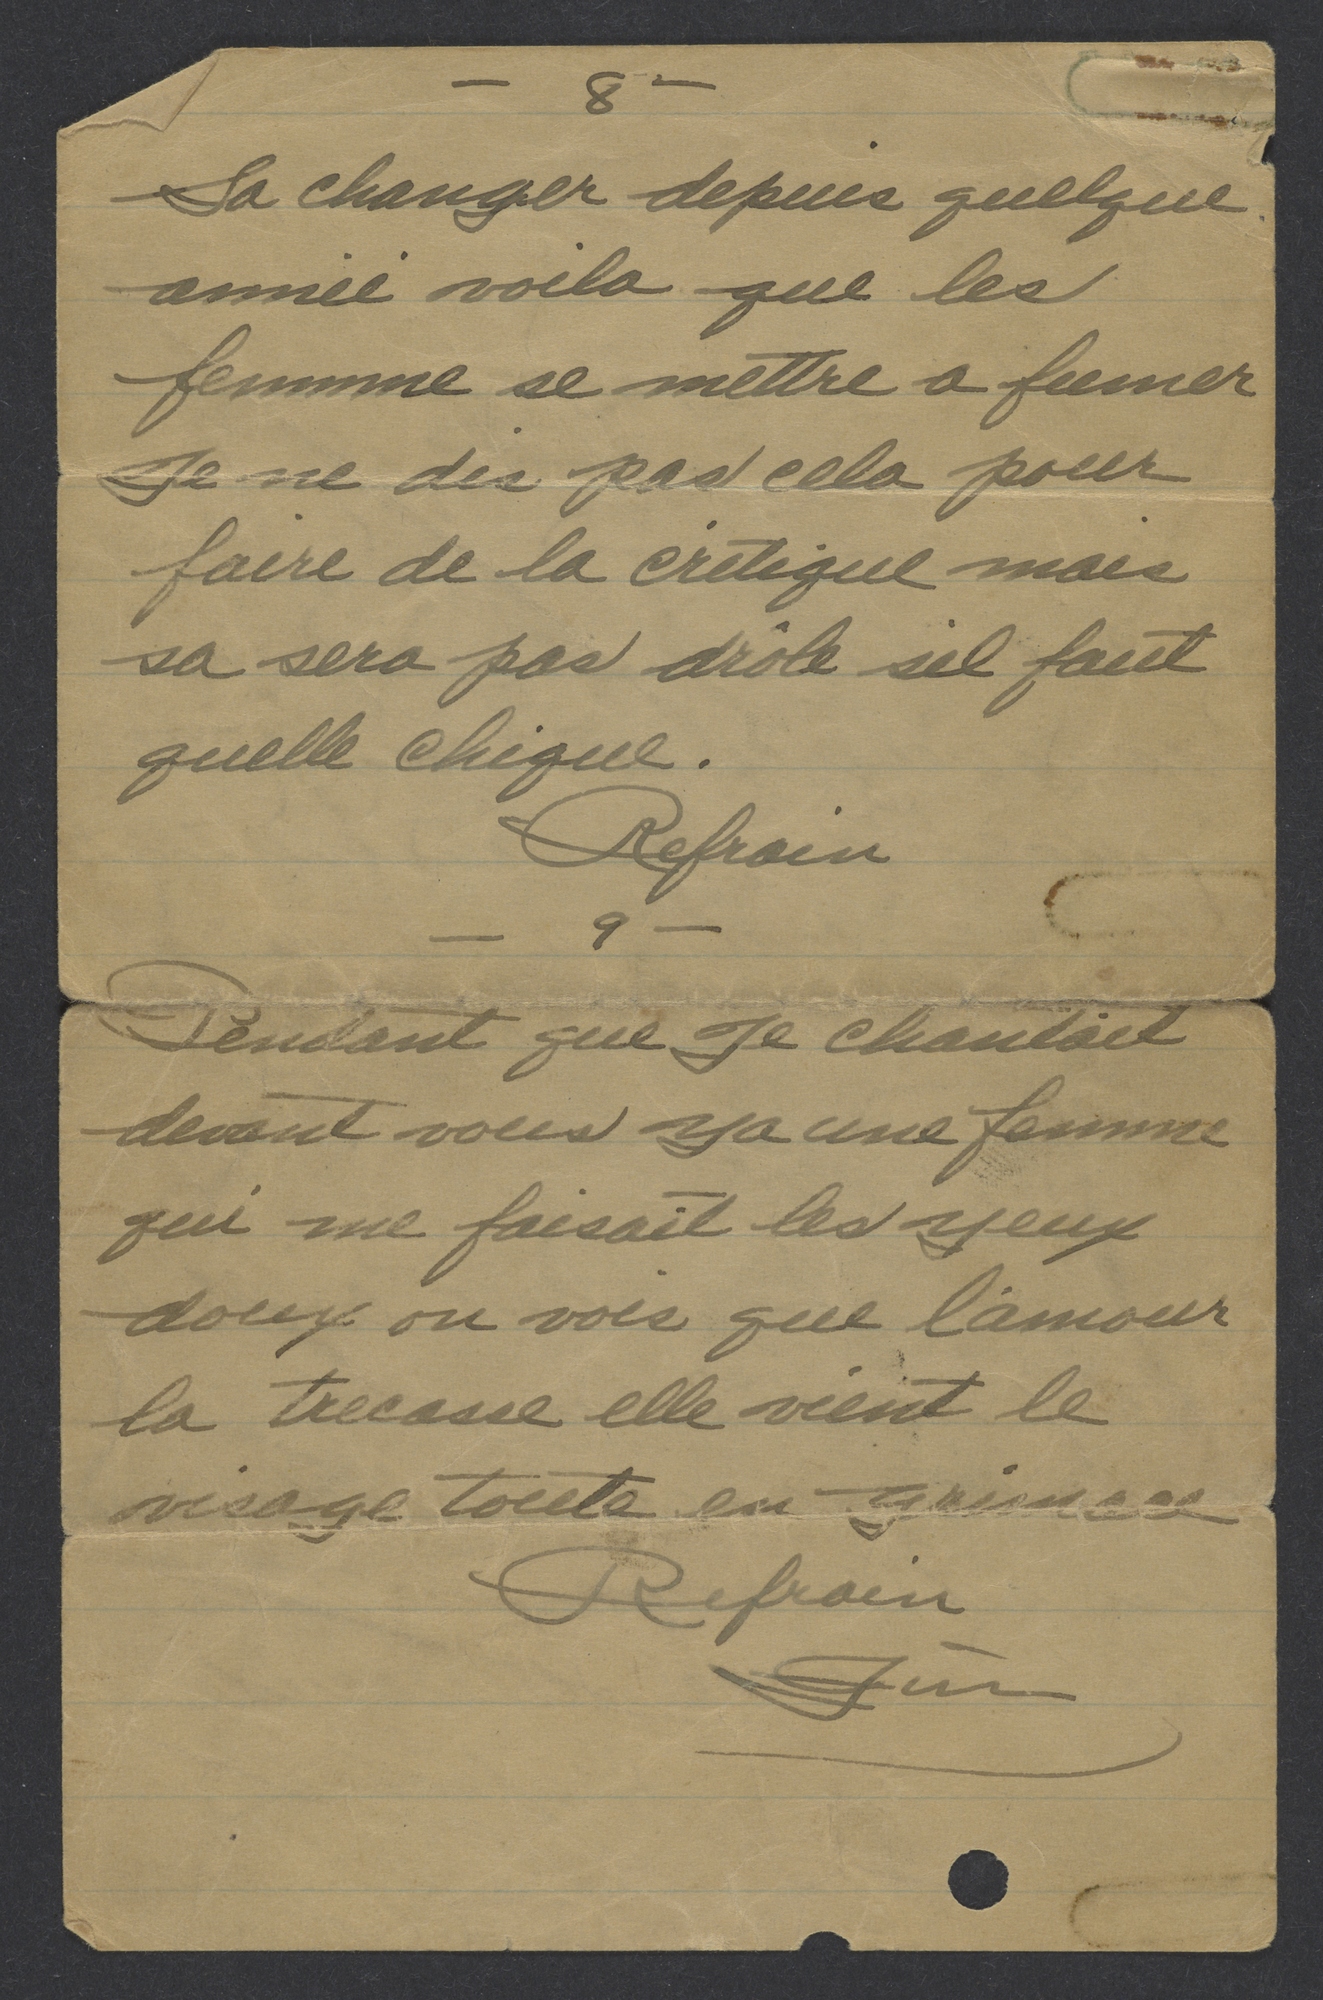 - 8 -
Sa changer depuis quelque
anniéé voila que les
femmme se mettre a fumer
Je ne dis pas cela pour
faire de la critique mais
sa sera pas drôle sil faut
quelle chique.
Refrain
- 9 -
Pendant que Je chantait
devant vous ya une femme
qui me faisait les yeux
doux on vois que l'amour
la trecasse elle vient le
visage toute en grimace
Refrain
Fin